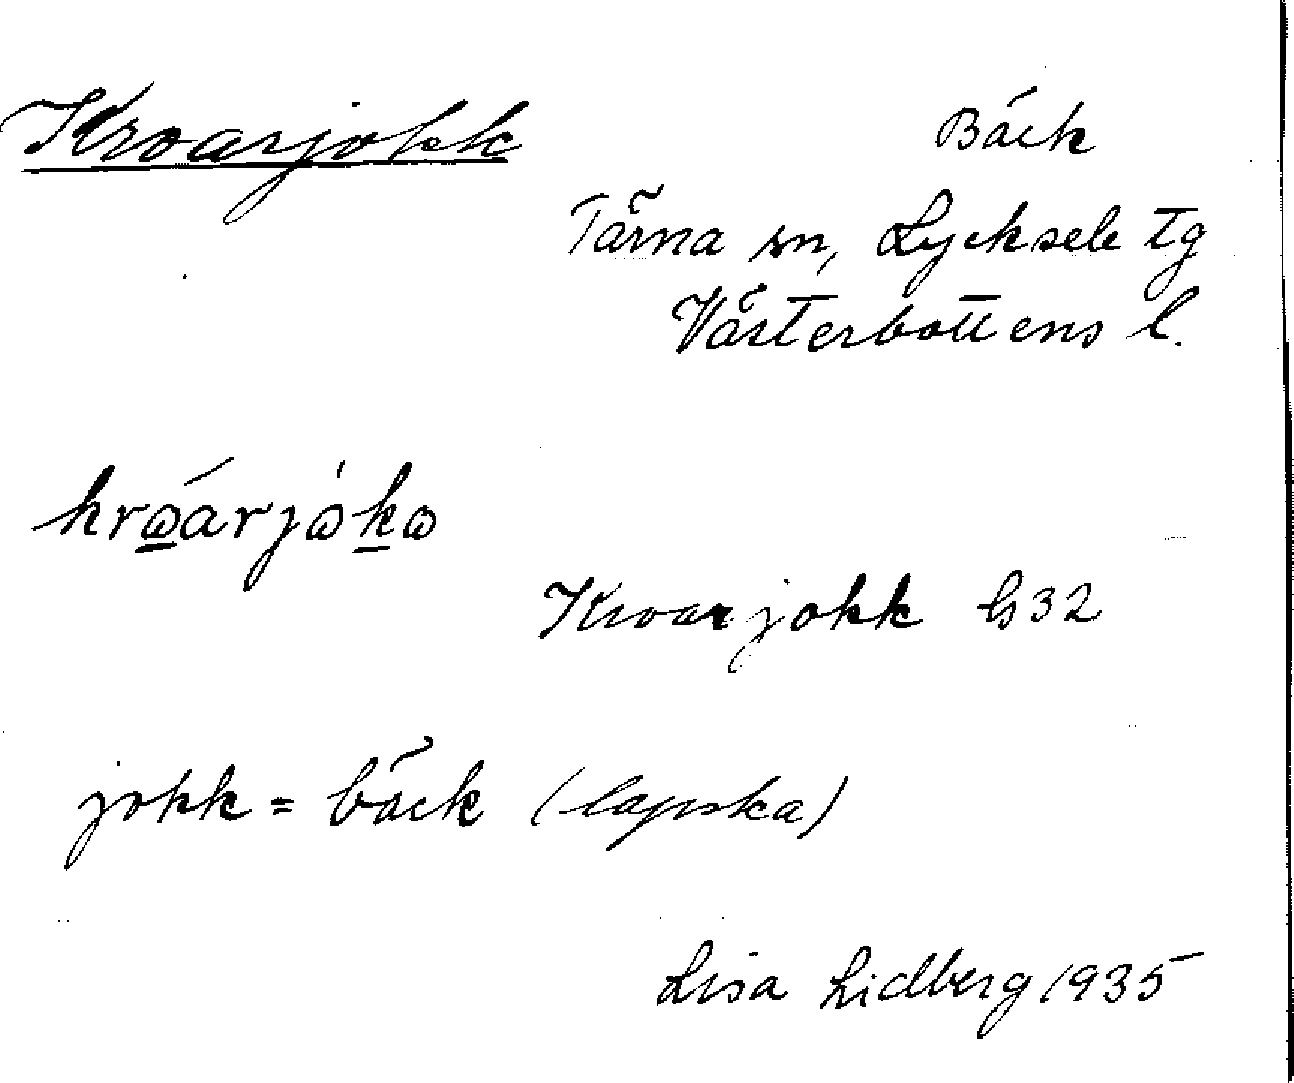 Kroarjokk
Bäck
Tärna sn, Lycksele tg
Västerbottens l.
Kroarjokk G32
jokk = bäck (lapska)
Lisa Lidberg 1935